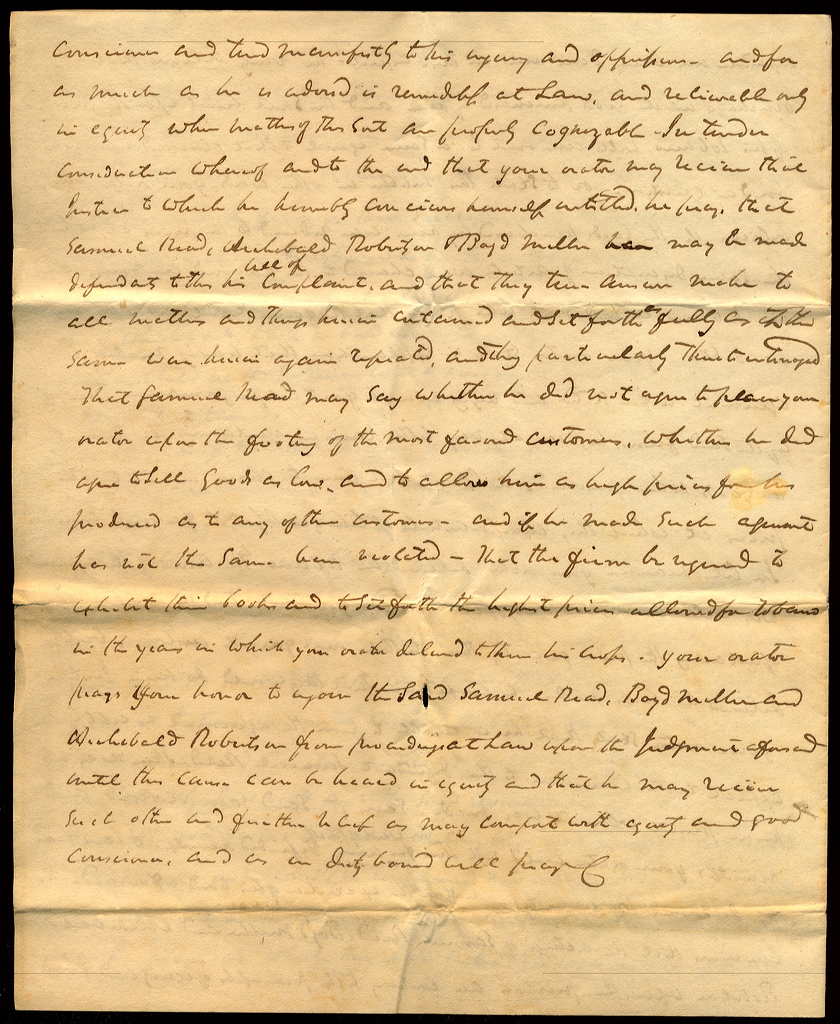 Conscience and tend manifestly to his injury and oppression - and for
as much as he is advised is remediless at Law, and relievable only
in equity where matters of this Sort are properly Cognizable - In tender
Consideration whereof and to the end that your orator may receive that
Justice to which he humbly conceives himself entitled, he prays that
Samuel Read, Archebald Robertson & Boyd Miller may be made
bill of
defendants to this his Complaint, and that they true answer make to
all matters and things herein contained and Set forth as fully as if the
Same were herein again repeated, and they particularly thereto interrogated
That Samuel Read may Say whether he did not agree to place your
orator upon the footing of the most favored customers, whether he did
agree to Sell Goods as low, and to allow him as high prices for his
produced as to any other customers - and if he made Such agreement
has not the Same been violated - That the firm be required to
exhibit their books and to Set forth the highest prices allowed for tobacco
in the years in which your orator delivered to them his Crops - your orator
prays your honor to enjoin the Said Samuel Read, Boyd Miller and
Archebald Robertson from proceedings at Law upon the Judgment aforesaid
until this cause can be heard in equity and that he may receive
Such other and further relief as may comport with equity and good
Conscience, and as in duty bound will pray &c